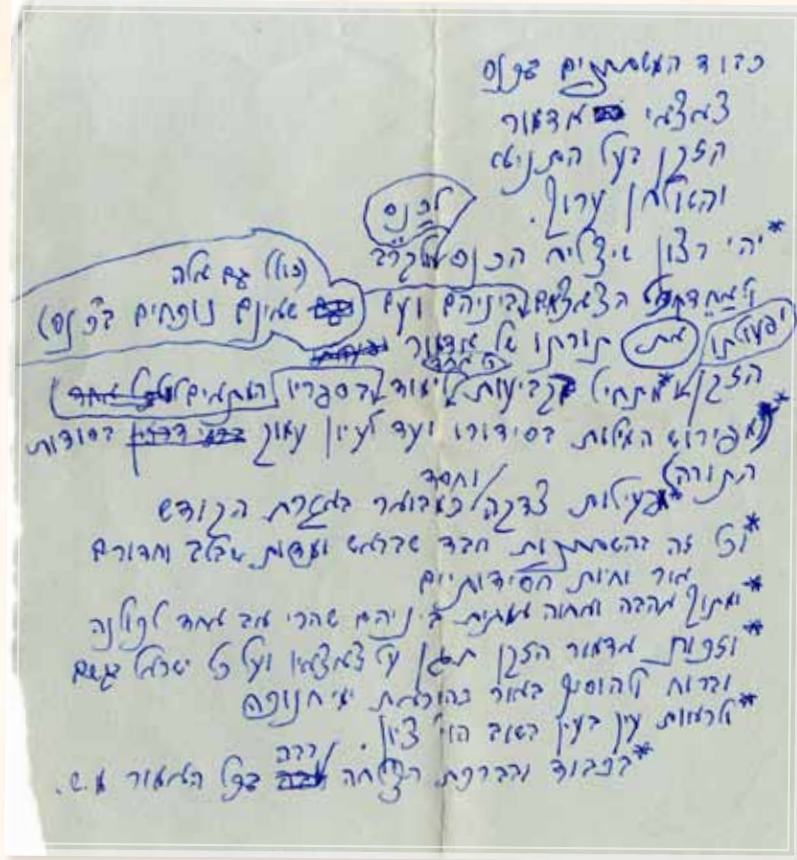 כבוד המשתתפים בכנס
צאצאי אדמור
הזקן בעל התניא
והשולחן ערוך.
לכנס
*יהי רצון שיצליח הכנס לקרב
(כולל גם אלה
ולאחד כל הצאצאים ביניהם ועם שאינם נוכחים בכנס)
ופעולתו את תורתו של אדמור
הזקן מתחיל קביעות לימוד בספריו המתאים לכל אחד
מפירוש המילות בסידורו ועד לעיון עמוק בסודות
התורה
*פעילות צדקה וחסד כמבואר באגרת הקודש
*וכל זה בהשתתפות חבד שבראש ועדות שבלב וחדורים
אור וחיות חסידותיים
*ומתוך אהבה ואחוה אמתית ביניהם שהרי אב אחד לכולנה
*וזכות אדמור הזקן תגן על צאצאיו ועל כל ישראל בגשם
וברוח להוסיף באור כהוראת ימי חנוכה
*לראות עין בעין בשוב הוי' ציון.
*בכבוד ובברכת הצלחה רבה בכל האמור מ.ש.